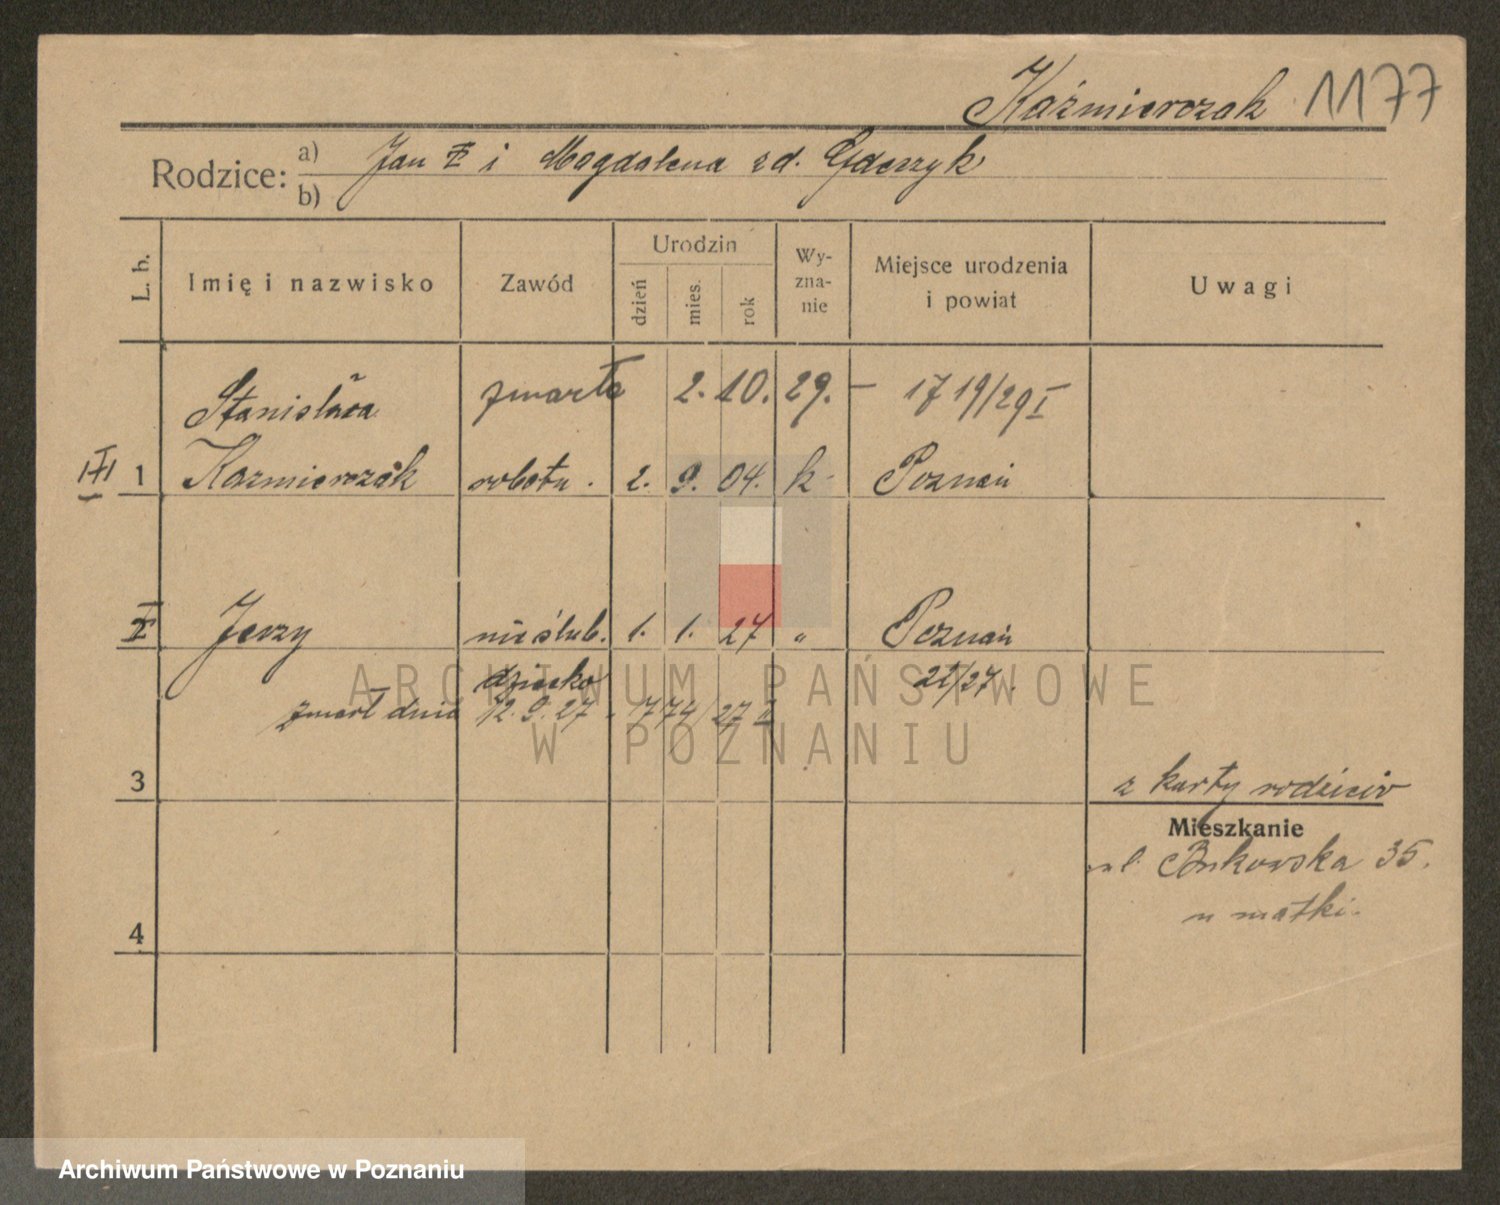 Kaźmierczak 1177
Rodzice: a) Jan ‡ i Magdalena zd. Gdaczyk
b)
L. b. Imię i nazwisko Zawód Urodzin dzień mies. rok Wyznanie Miejsce urodzenia i powiat Uwagi
Stanisława zmarła 2. 10. 29. – 1719/29 I
1 Kaźmierczak robotn. 2. 9. 04. k. Poznań
2 Jerzy nieślub. 1. 1. 27 " Poznań
dziecko 22/27.
zmarł dnia 12. 9. 27 - 1774/27 II
3
z karty rodziców
Mieszkanie
ul. Bukowska 35.
u matki.
4
ARCHIWUM PAŃSTWOWE
W POZNANIU
Archiwum Państwowe w Poznaniu